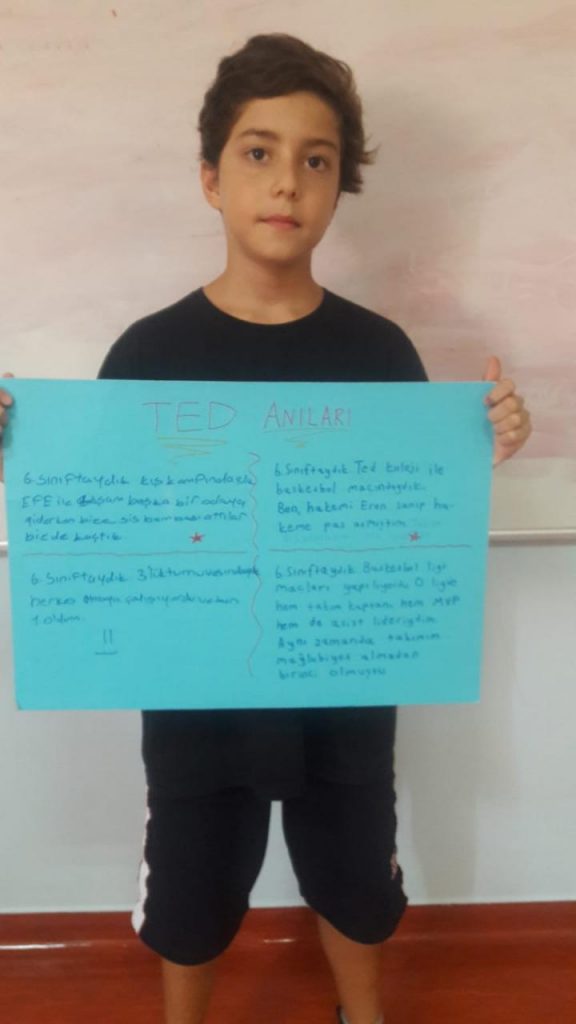 TED ANILARI
6. Sınıftaydık kış kampında
EFE ile akşam başka bir odaya
giderken bize sis bombası attılar
bizde kaçtık.
6. Sınıftaydık. Ted koleji ile
basketbol maçındaydık.
Ben, hakemi Eren sanıp ha-
keme pas atmıştım.
6. Sınıftaydık 3 lük turnuvasında
herkes çalışıyordu ve ben
1 oldum.
6. Sınıftaydık Basketbol ligi
maçları yapılıyordu. O ligde
hem takım kaptanı hem MVP
hem de asist lideriydim.
Aynı zamanda takımım
mağlubiyet almadan
birinci olmuştu